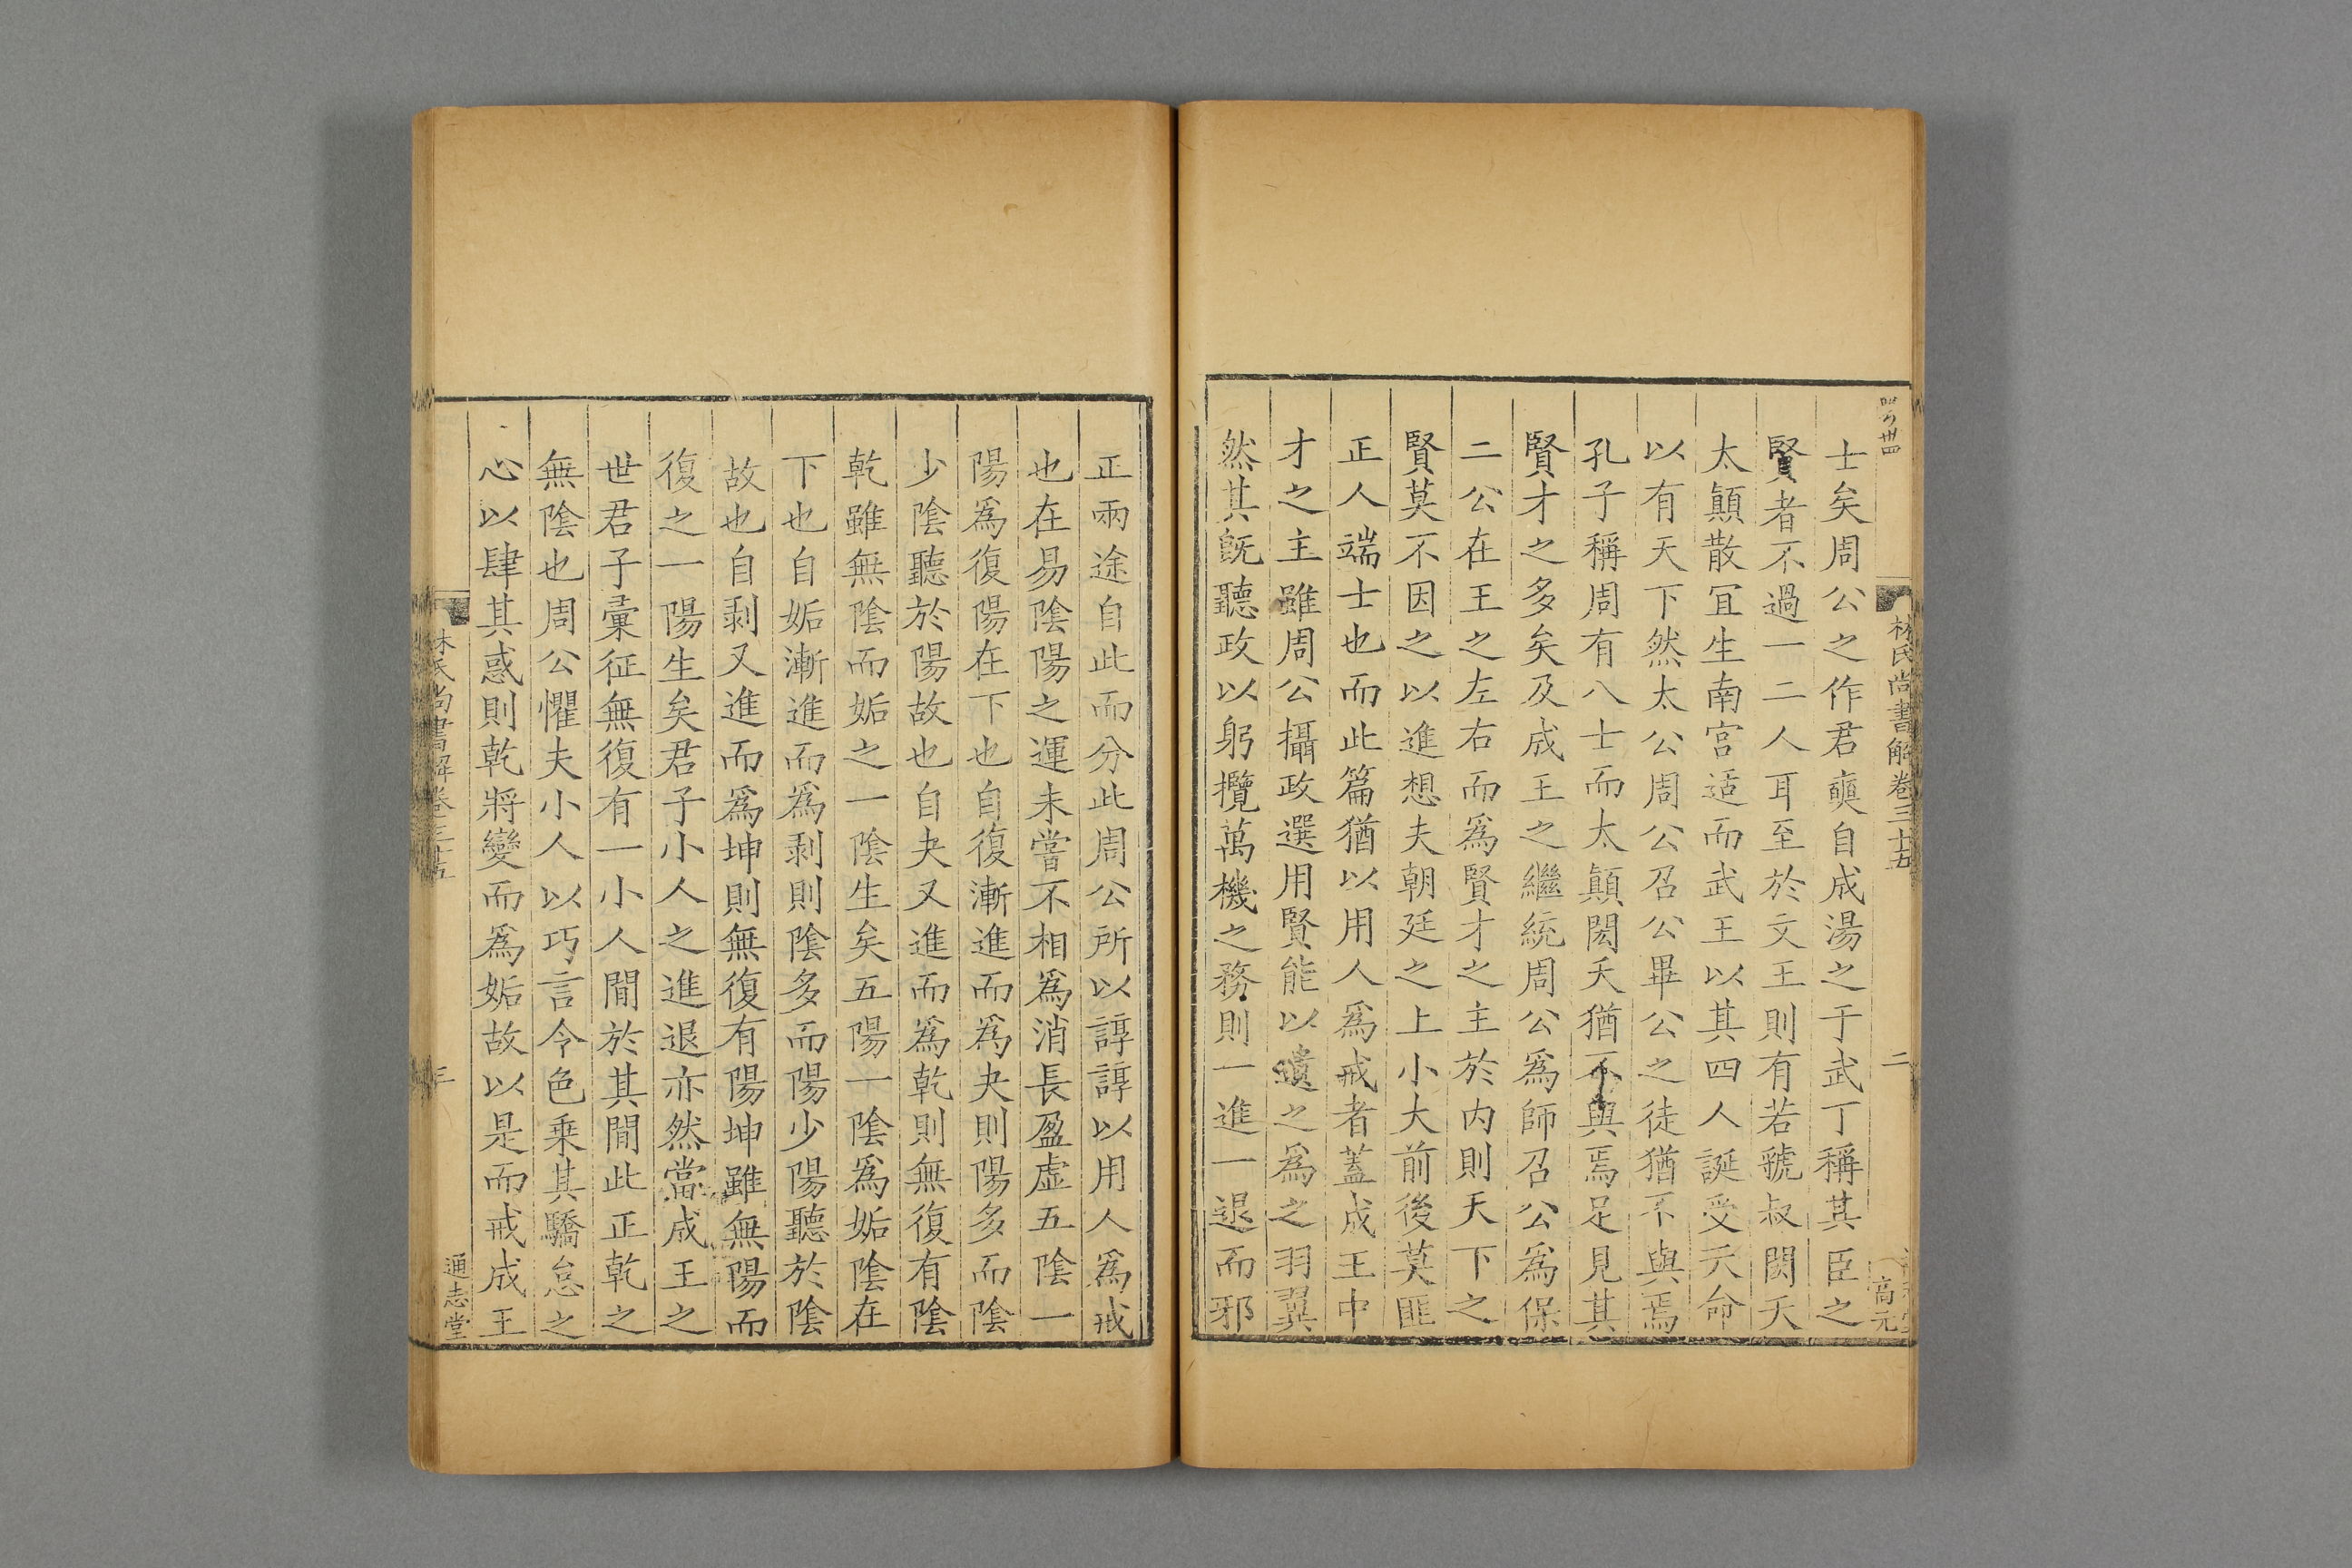 林氏尚書解卷三十五
二
高元
士矣周公之作君奭自成湯之于武丁稱其臣之
賢者不過一二人耳至於文王則有若虢叔閎夭
太顛散宜生南宮适而武王以其四人誕受天命
以有天下然太公周公召公畢公之徒猶不與焉
孔子稱周有八士而太顛閎夭猶不與焉足見其
賢才之多矣及成王之繼統周公爲師召公爲保
二公在王之左右而爲賢才之主於内則天下之
賢莫不因之以進想夫朝廷之上小大前後莫匪
正人端士也而此篇猶以用人爲戒者蓋成王中
才之主雖周公攝政選用賢能以遺之爲之羽翼
然其旣聽政以躬攬萬機之務則一進一退而邪
正兩途自此而分此周公所以諄諄以用人爲戒
也在易陰陽之運未嘗不相爲消長盈虛五陰一
陽爲復陽在下也自復漸進而爲夬則陽多而陰
少陰聽於陽故也自夬又進而爲乾則無復有陰
乾雖無陰而姤之一陰生矣五陽一陰爲姤陰在
下也自姤漸進而爲剥則陰多而陽少陽聽於陰
故也自剥又進而爲坤則無復有陽坤雖無陽而
復之一陽生矣君子小人之進退亦然當成王之
世君子彙征無復有一小人閒於其閒此正乾之
無陰也周公懼夫小人以巧言令色乗其驕怠之
心以肆其惑則乾將變而爲姤故以是而戒成王
林氏尚書解卷三十五
三
通志堂